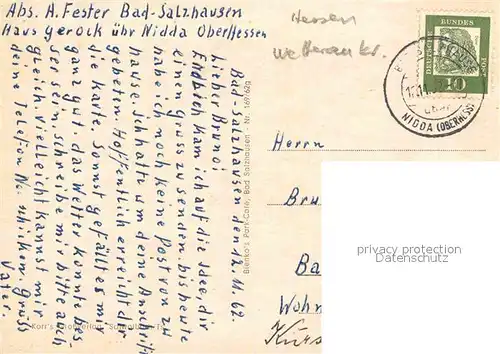 Abs. A. Fester Bad-Salzhausen
Haus Gerock übr Nidda Oberhessen
Hessen
Wetterau kr.
DEUTSCHE BUNDES POST
10
NIDDA (OBERHESS)
Bad-Salzhausen den 12.11.62.
Lieber Bruno!
Endlich kam ich auf die Idee, dir
einen Gruss zu senden. bis heute
habe ich noch keine Post von zu
hause. ich hatte um deine Anschrift
gebeten. Hoffentlich erreicht der
die Karte. Sonst gefällt es mir
ganz gut das Wetter könnte bes-
ser sein, schreibe mir bitte auch
gleich, vielleicht kannst mir
deine Telefon No schicken. Gruss
Vater.
Blenko's Park-Café, Bad Salzhausen - Nr. 169/62g
Herrn
Bru
Ba
Wohn
Kurs
privacy protection
watermark